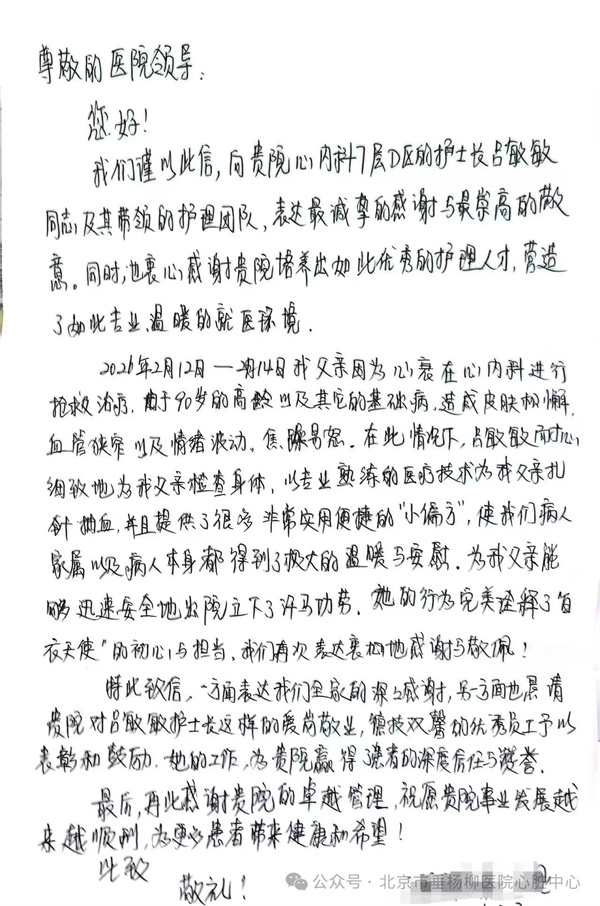 尊敬的医院领导：
您好！
我们谨以此信，向贵院心内科7层D区的护士长吕敏敏
同志及其带领的护理团队，表达最诚挚的感谢与最崇高的敬
意。同时，也衷心感谢贵院培养出如此优秀的护理人才，营造
了如此专业、温暖的就医环境．
2026年2月12日一2月14日我父亲因为心衰在心内科进行
抢救治疗．由于90岁的高龄以及其它的基础病，造成皮肤松懈．
血管狭窄以及情绪波动．焦躁易怒．在此情况下，吕敏敏耐心
细致地为我父亲检查身体．以专业熟练的医疗技术为我父亲扎
针抽血，并且提供了很多非常实用便捷的“小偏方”，使我们病人
家属以及病人本身都得到了极大的温暖与安慰．为我父亲能
够迅速安全地出院立下了汗马功劳．她的行为完美诠释了“白
衣天使”的初心与担当．我们再次表达衷心地感谢与敬佩！
特此致信，一方面表达我们全家的深深感谢，另一方面也恳请
贵院对吕敏敏护士长这样的爱岗敬业，德技双馨的优秀员工予以
表彰和鼓励．她的工作，为贵院赢得了患者的深度信任与赞誉．
最后，再此感谢贵院的卓越管理，祝愿贵院事业发展越
来越顺利，为更多患者带来健康和希望！
此致
敬礼！
公众号·北京市垂杨柳医院心脏中心